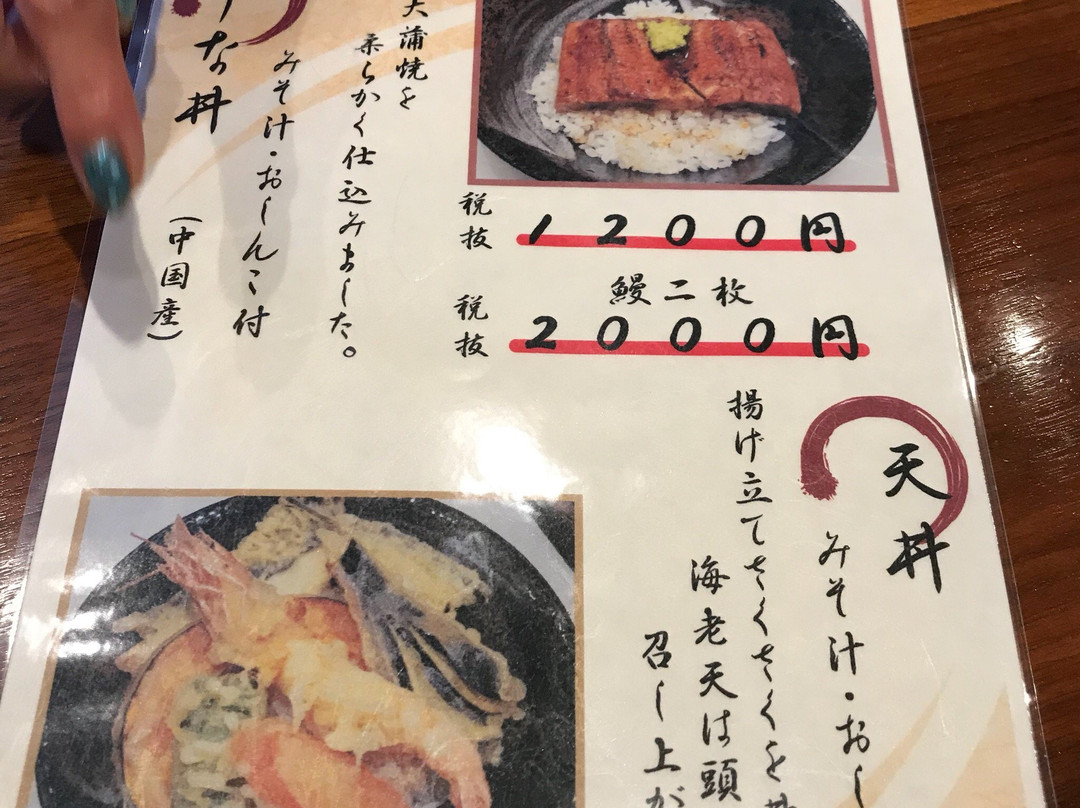 な丼
みそ汁・おしんこ付
(中国産)
大蒲焼を
柔らかく仕込みました。
税抜
1200円
鰻二枚
税抜
2000円
天丼
みそ汁・おし
揚げ立てさくさくを丼
海老天は頭
召し上が